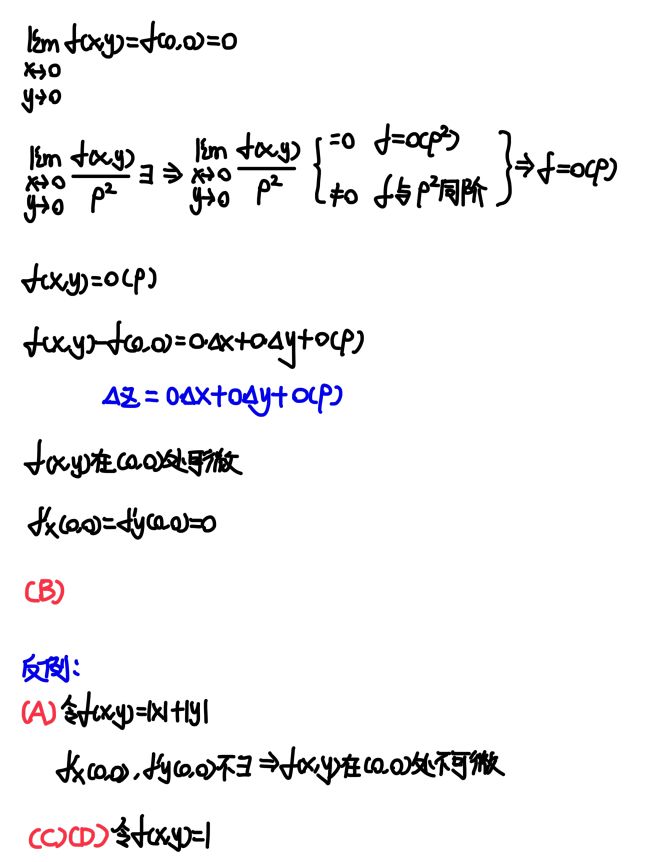 lim f(x,y)=f(0,0)=0
x→0
y→0
lim f(x,y)/ρ² ∃ ⇒ lim f(x,y)/ρ² { =0 f=o(ρ²) } ⇒ f=o(ρ)
x→0 x→0 ≠0 f与ρ²同阶
y→0 y→0
f(x,y)=o(ρ)
f(x,y)-f(0,0)=0·Δx+0·Δy+o(ρ)
Δz=0Δx+0Δy+o(ρ)
f(x,y)在(0,0)处可微
f'x(0,0)=f'y(0,0)=0
(B)
反例:
(A) 令f(x,y)=|x|+|y|
f'x(0,0),f'y(0,0)不∃⇒f(x,y)在(0,0)处不可微
(C)(D) 令f(x,y)=1